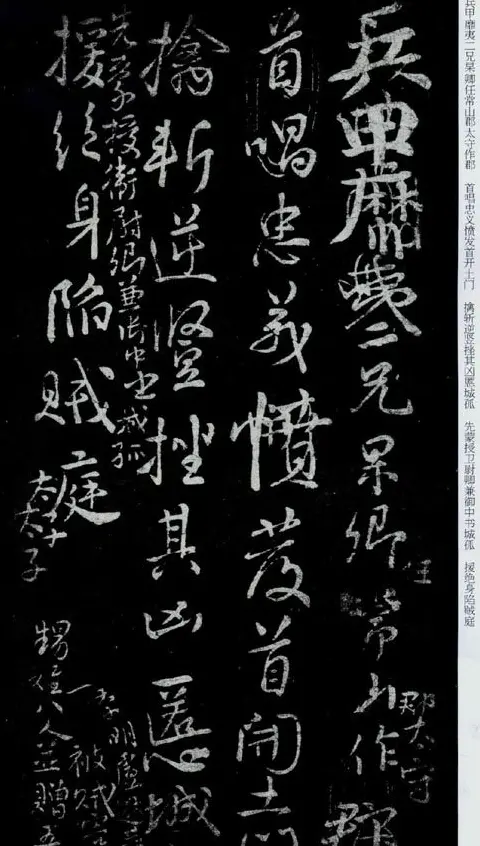 兵甲靡夷二兄杲卿任常山郡太守作郡　首唱忠义愤发首开土门　擒斩逆竖挫其凶慝城孤　先蒙授卫尉卿兼御中书城孤　援绝身陷贼庭
兵甲靡夷二兄杲卿任常山郡太守作郡
首唱忠義憤發首開土門
擒斬逆豎挫其凶慝城
先蒙授衛尉卿兼御中丞城孤
援絕身陷賊庭
太子
李明盧逖等
被賊害
甥侄八人並贈五